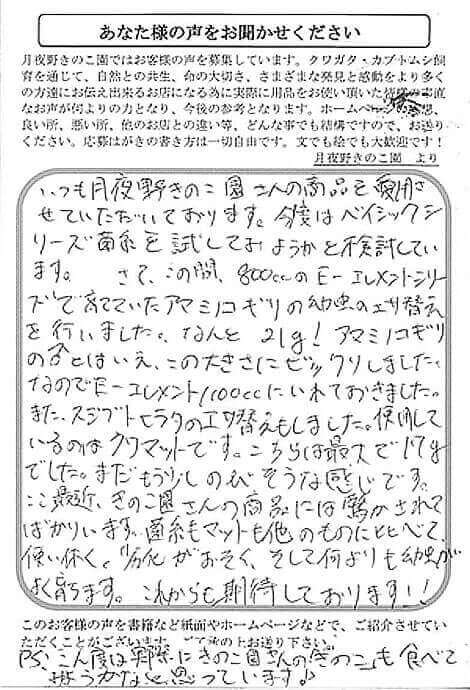 あなた様の声をお聞かせください
月夜野きのこ園ではお客様の声を募集しています。クワガタ・カブトムシ飼
育を通じて、自然との共生、命の大切さ、さまざまな発見と感動をより多く
の方達にお伝え出来るお店になる為に実際に用品をお使い頂いた皆様の率直
なお声が何よりの力となり、今後の参考となります。ホームページの感想、
良い所、悪い所、他のお店との違い等、どんな事でも結構ですので、お送り
ください。応募はがきの書き方は一切自由です。文でも絵でも大歓迎です！
月夜野きのこ園 より
いつも月夜野きのこ園さんの商品を愛用さ
せていただいております。今度はベイシックシ
リーズ菌糸を試してみようかと検討してい
ます。 さて、この間、800ccのE-エレメントシリー
ズで育てていたアマミノコギリの幼虫のエサ替え
を行いました。なんと21g！アマミノコギリ
の♂とはいえ、この大きさにビックリしました。
なのでE-エレメント1100ccにいれておきました。
また、スジブトヒラタのエサ替えもしました。使用して
いるのはクワマットです。こちらは最大で17g
でした。まだもう少しのびそうな感じです。
ここ最近、きのこ園さんの商品には驚かされて
ばかりいます。菌糸もマットも他のものとくらべて、
使い易く、劣化がおそく、そして何よりも幼虫が
よく育ちます。これからも期待しております！！
このお客様の声を書籍など紙面やホームページなどで、ご紹介させてい
ただくことがございます。ご了承の上お送り下さい。
PS:こん度は実際にきのこ園さんの「きのこ」も食べて
みようかなと思っています♪